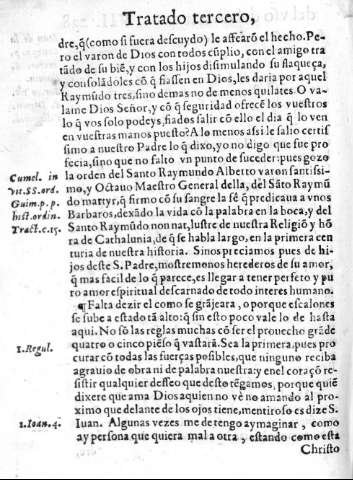 Tratado tercero,
dre, q̃(como si fuera descuydo) le affearõ el hecho. Pe-
ro el varon de Dios con todos cũplio, con el amigo tra
tãdo de su biẽ, y con los hijos disimulando su flaqueça,
y consolãdoles cõ q̃ fiassen en Dios, les daria por aquel
Raymũdo tres, sino demas no de menos quilates. O va-
lame Dios Señor, y cõ q̃ seguridad ofrecẽ los vuestros
lo q̃ vos solo podeys, fiados salir cõ ello el dia q̃ lo ven
en vuestras manos puesto? A lo menos assi le salio certis
simo a nuestro Padre lo q̃ dixo, yo no digo que fue pro
fecia, sino que no faltò vn punto de suceder: pues gozo
la orden del Santo Raymundo Alberto varon santissi-
mo, y Octauo Maestro General della, del Sãto Raymũ
do martyr, q̃ firmo cõ su sangre la fè q̃ predicaua a vnos
Barbaros, dexãdo la vida cõ la palabra en la boca, y del
Santo Raymũdo non nat, lustre de nuestra Religiõ y hõ
ra de Cathalunia, de q̃ se habla largo, en la primera cen
turia de nuestra historia. Si nos preciamos pues de hi-
jos deste S. Padre, mostremonos herederos de su amor,
q̃ mas facil de lo q̃ parece, es llegar a tener perfeto y pu
ro amor espiritual descarnado de todo interes humano.
¶ Falta dezir el como se grãjeara, o por que escalones
se sube a estado tã alto: q̃ sin esto poco vale lo de hasta
aqui. No sõ las reglas muchas cõ ser el prouecho grãde
quatro o cinco piẽso q̃ vastarã. Sea la primera, pues pro
curar cõ todas las fuerças posibles, que ninguno reciba
agrauio de obra ni de palabra nuestra: y en el coraçõ re-
sistir qualquier desseo que desto tẽgamos, porque quiẽ
dixere que ama Dios a quien no vè no amando al pro-
ximo que delante de los ojos tiene, mentiroso es dize S.
Iuan. Algunas vezes me detengo a ymaginar, como
ay persona que quiera mal a otra, estando como està
Christo
Cumel. in
vit. SS. ord.
Guim. p. p.
hist. ordin.
Tract. c. 15.
1. Regul.
1. Ioan. 4.